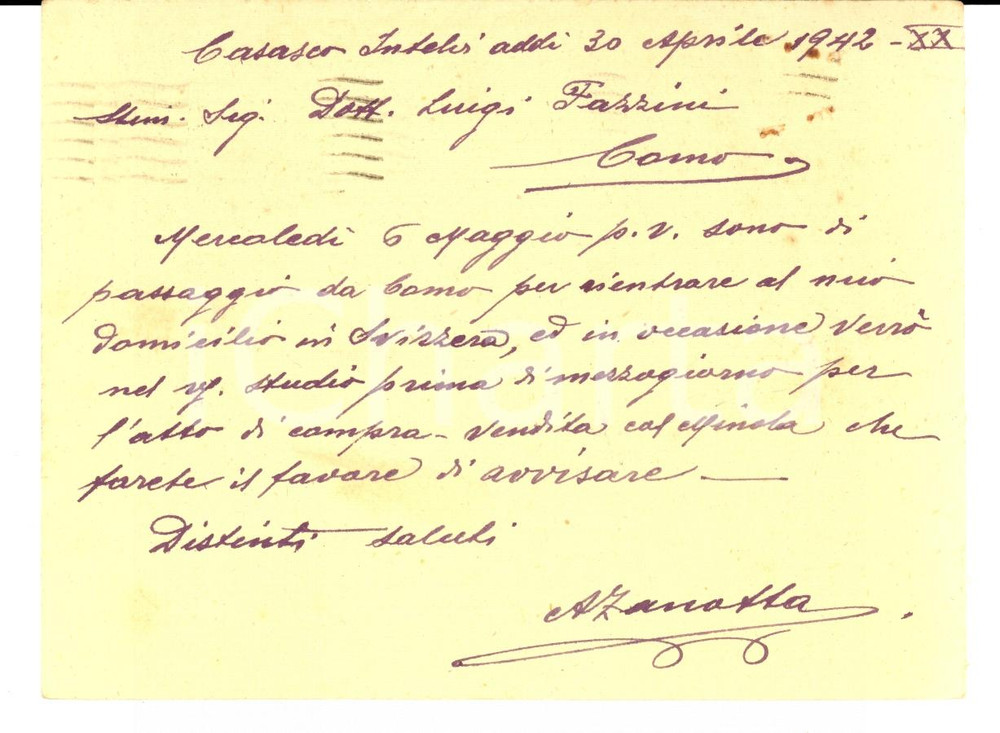 Casasco Intelvi addì 30 Aprile 1942 - XX
Stim. Sig. Dott. Luigi Fazzini
Como
Mercoledì 6 Maggio p.v. sono di
passaggio da Como per rientrare al mio
domicilio in Svizzera, ed in occasione verrò
nel vs. studio prima di mezzogiorno per
l'atto di compra-vendita col Minola che
farete il favore di avvisare —
Distinti saluti
AZanotta